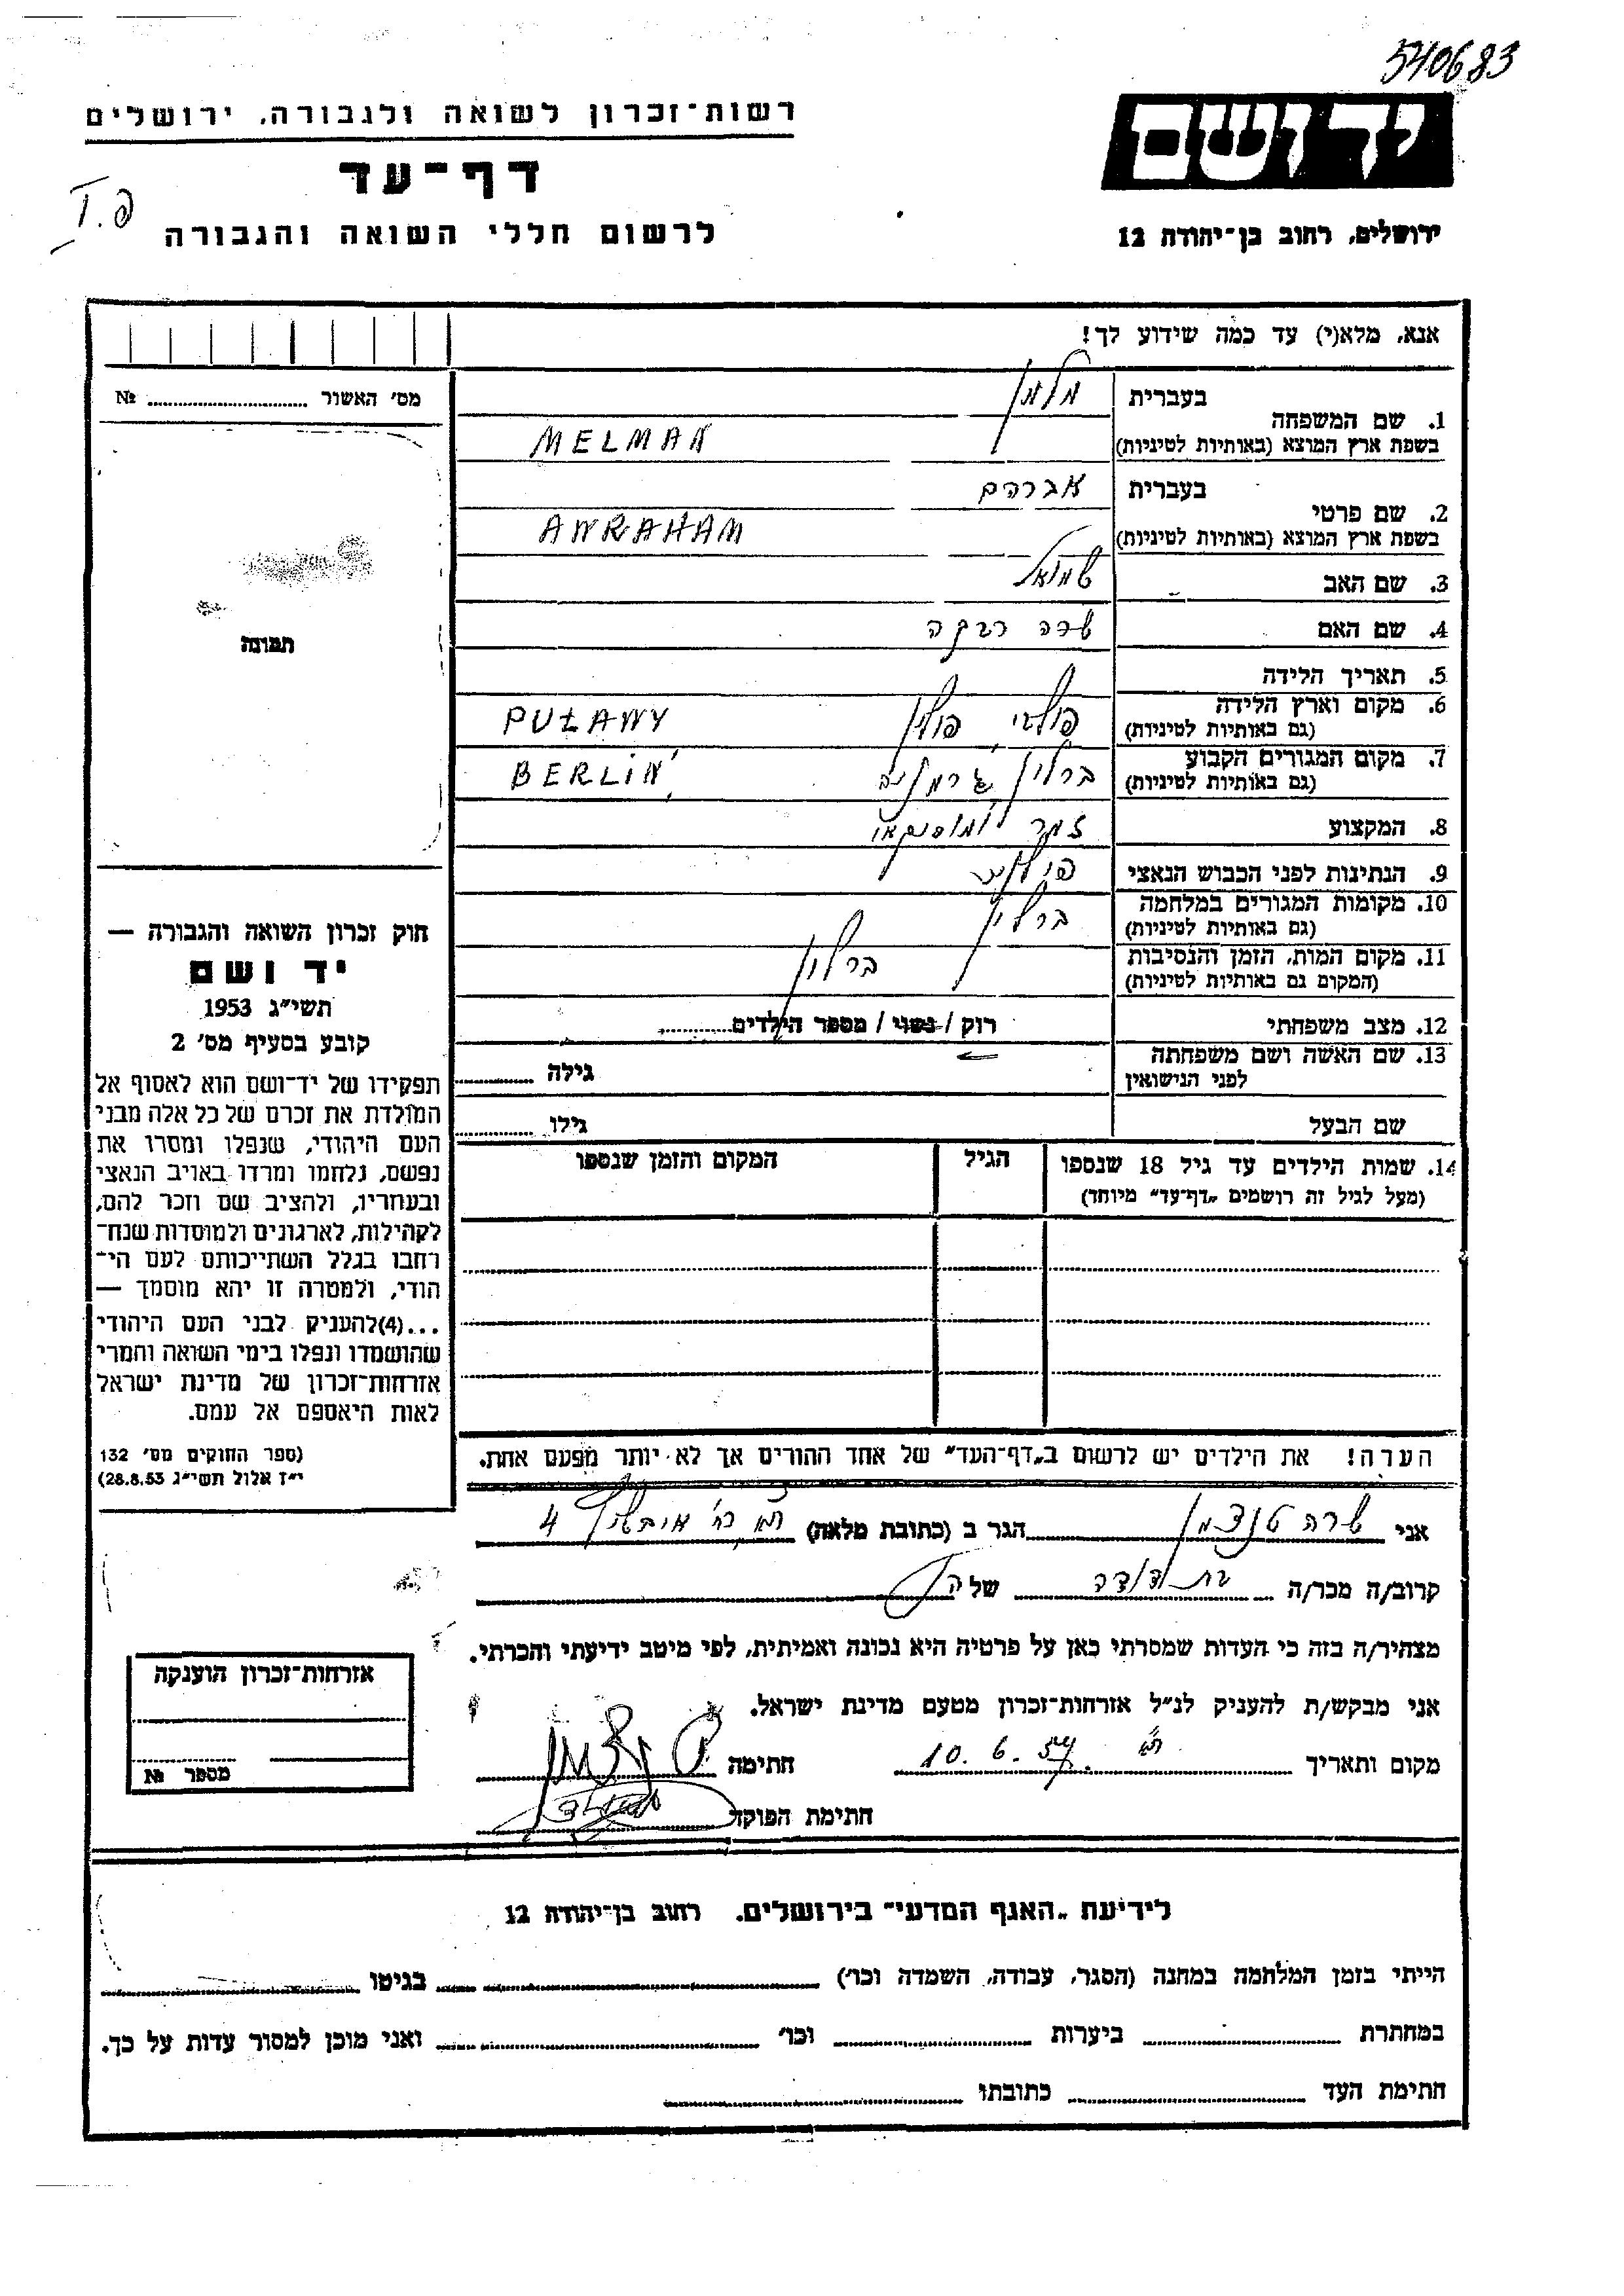 540683
רשות־זכרון לשואה ולגבורה, ירושלים
יד ושם
דף־עד
פ.I
לרשום חללי השואה והגבורה
ירושלים, רחוב בן־יהודה 12
אנא, מלא(י) עד כמה שידוע לך!
מס׳ האשור ........ №
תמונה
1. שם המשפחה
בעברית מלמן
בשפת ארץ המוצא (באותיות לטיניות) MELMAN
2. שם פרטי
בעברית אברהם
בשפת ארץ המוצא (באותיות לטיניות) AWRAHAM
3. שם האב שמואל
4. שם האם שרה רבקה
5. תאריך הלידה
6. מקום וארץ הלידה
(גם באותיות לטיניות) פולבי, פולין PUŁAWY
7. מקום המגורים הקבוע
(גם באותיות לטיניות) ברלין גרמניה BERLIN
8. המקצוע זמר ומוסיקאי
9. הנתינות לפני הכבוש הנאצי פולנית
10. מקומות המגורים במלחמה
(גם באותיות לטיניות) ברלין
11. מקום המות, הזמן והנסיבות
(המקום גם באותיות לטיניות) ברלין
12. מצב משפחתי רוק / נשוי / מספר הילדים........
13. שם האשה ושם משפחתה
לפני הנישואין
גילה ........
שם הבעל גילו ........
14. שמות הילדים עד גיל 18 שנספו
(מעל לגיל זה רושמים „דף־עד” מיוחד)
הגיל
המקום והזמן שנספו
חוק זכרון השואה והגבורה —
יד ושם
תשי״ג 1953
קובע בסעיף מס׳ 2
תפקידו של יד־ושם הוא לאסוף אל
המולדת את זכרם של כל אלה מבני
העם היהודי, שנפלו ומסרו את
נפשם, נלחמו ומרדו באויב הנאצי
ובעוזריו, ולהציב שם וזכר להם,
לקהילות, לארגונים ולמוסדות שנח־
רחבו בגלל השתייכותם לעם הי־
הודי, ולמטרה זו יהא מוסמך —
...(4)להעניק לבני העם היהודי
שהושמדו ונפלו בימי השואה והמרי
אזרחות־זכרון של מדינת ישראל
לאות היאספם אל עמם.
(ספר החוקים מס׳ 132
י״ז אלול תשי״ג 28.8.53)
הערה! את הילדים יש לרשום ב„דף־העד” של אחד ההורים אך לא יותר מפעם אחת.
אני שרה טנצמן הגר ב (כתובת מלאה) 4
קרוב/ה מכר/ה בת דודה של הנ״ל
מצהיר/ה בזה כי העדות שמסרתי כאן על פרטיה היא נכונה ואמיתית, לפי מיטב ידיעתי והכרתי.
אני מבקש/ת להעניק לנ״ל אזרחות־זכרון מטעם מדינת ישראל.
מקום ותאריך ת״א 10.6.57 חתימה
חתימת הפוקד
אזרחות־זכרון הוענקה
מספר №
לידיעת „האגף המדעי” בירושלים, רחוב בן־יהודה 12
הייתי בזמן המלחמה במחנה (הסגר, עבודה, השמדה וכו׳) ........ בגיטו ........
במחתרת ........ ביערות ........ וכו׳ ........ ואני מוכן למסור עדות על כך.
חתימת העד ........ כתובתו ........